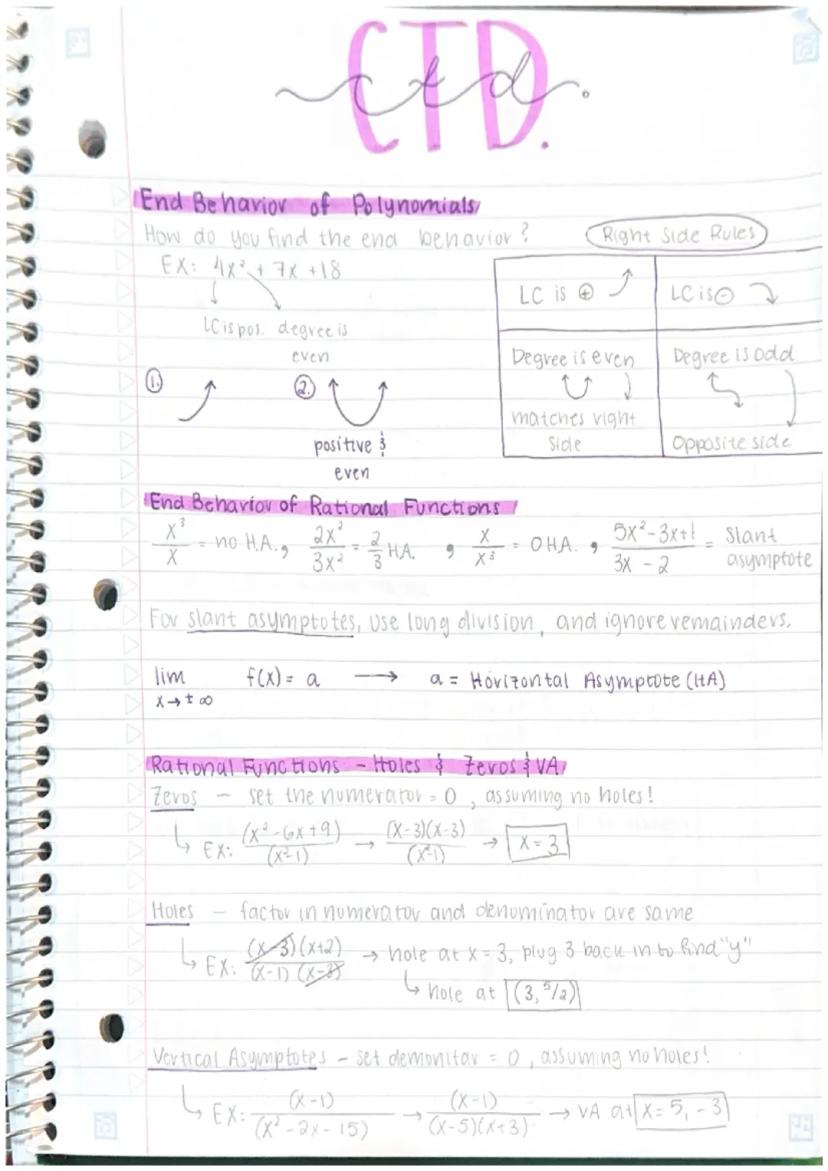 CTD.
ctd.
End Behavior of Polynomials
How do you find the end behavior?
EX: 4x² + 7x + 18
LC is pos. degree is
even
①. ②.
positive &
even
Right Side Rules
LC is ⊕ LC is ⊖
Degree is even Degree is odd
matches right opposite side
side
End Behavior of Rational Functions
x³/x = no H.A., 2x²/3x² = 2/3 HA, x/x³ = 0 HA, (5x²-3x+1)/(3x - 2) = Slant asymptote
For slant asymptotes, use long division, and ignore remainders.
lim f(x) = a → a = Horizontal Asymptote (HA)
x→±∞
Rational Functions - Holes & Zeros & VA
Zeros - set the numerator = 0, assuming no holes!
↳ EX: (x²-6x+9)/(x²-1) → (x-3)(x-3)/(x²-1) → x = 3
Holes - factor in numerator and denominator are same
↳ EX: (x-3)(x+2)/(x-1)(x-3) → hole at x = 3, plug 3 back in to find "y"
↳ hole at (3, 5/2)
Vertical Asymptotes - set demonitar = 0, assuming no holes!
↳ EX: (x-1)/(x²-2x-15) → (x-1)/(x-5)(x+3) → VA at x = 5, -3